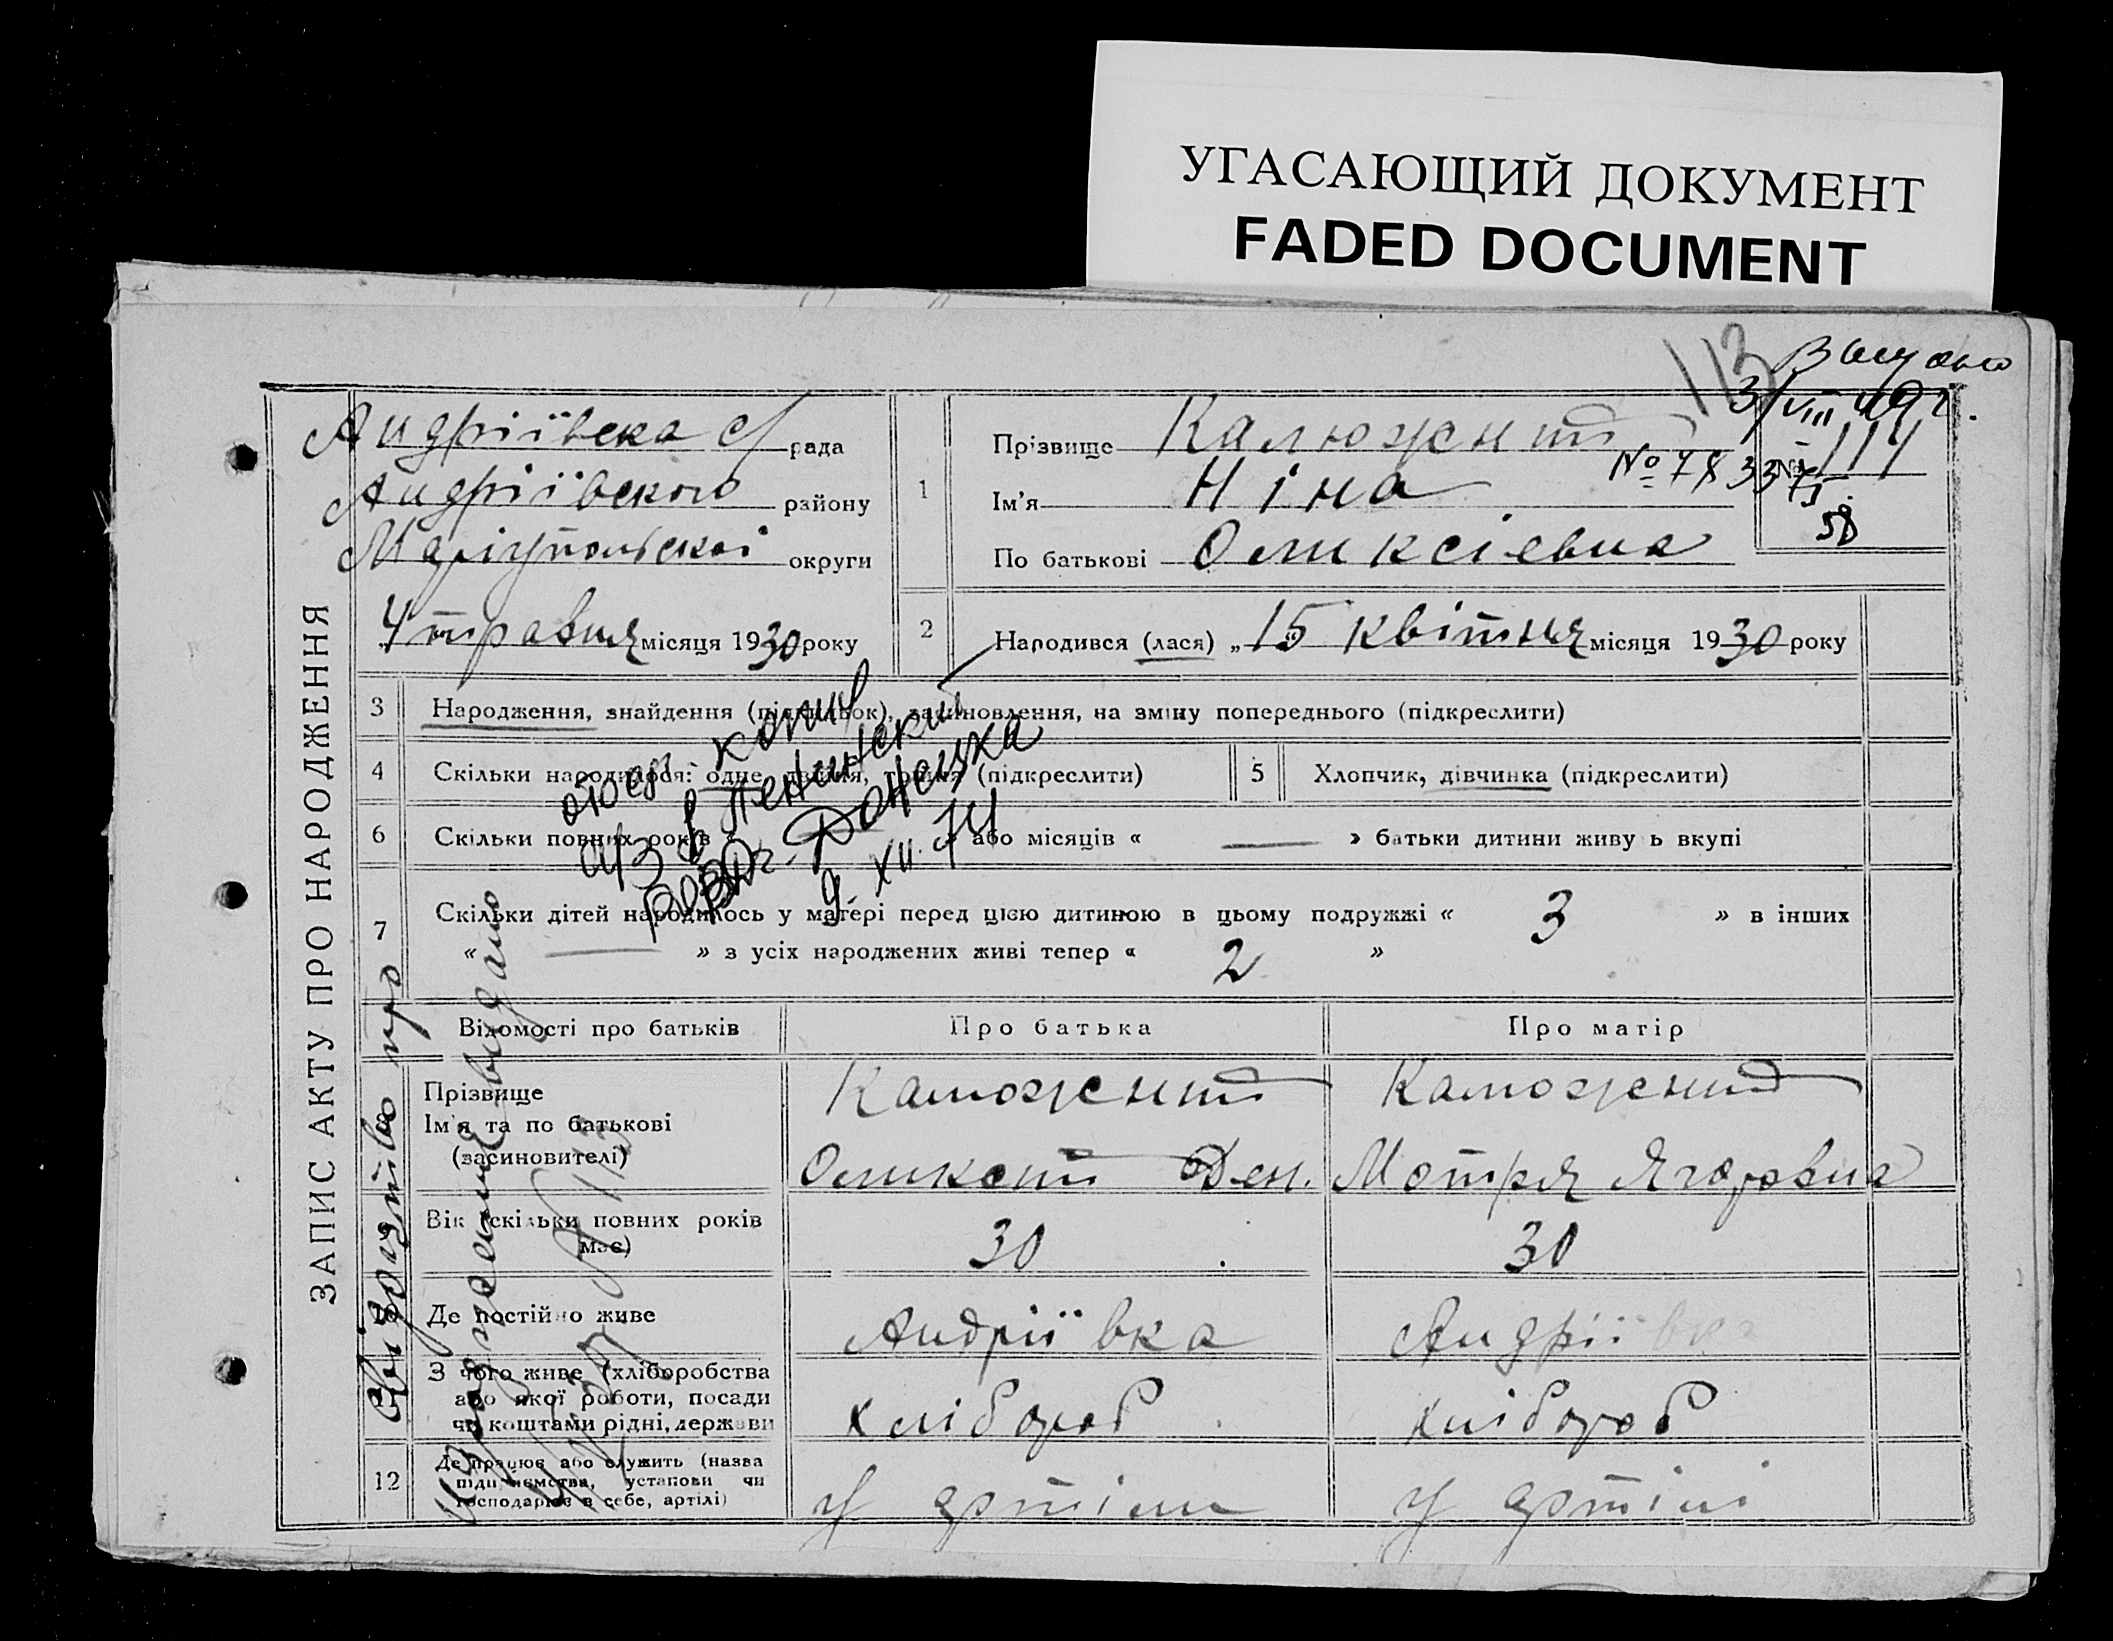 УГАСАЮЩИЙ ДОКУМЕНТ
FADED DOCUMENT
113
Выдано
31/VIII 49г.
ЗАПИС АКТУ ПРО НАРОДЖЕННЯ
Андріївска с/рада
Андріївского району
Маріупольскоі округи
„4“ травня місяця 1930 року
1
Прізвище Калюжний
Ім'я Ніна
По батькові Оликсіевна
№ 114
№ 78
58
2
Народився (лася) „15“ квітня місяця 1930 року
3
Народження, знайдення (підкидьок), засиновлення, на зміну попереднього (підкреслити)
4
Скільки народилося: одне, двійня, трійня (підкреслити)
5
Хлопчик, дівчинка (підкреслити)
6
Скільки повних років « » або місяців « — » батьки дитини живуть вкупі
7
Скільки дітей народилось у матері перед цією дитиною в цьому подружжі « 3 » в інших
« — » з усіх народжених живі тепер « 2 »
копия
а/з в Ленинский
Донецка
9. XII. 74
Свідоцтво про
видано
Відомості про батьків
Про батька
Про матір
Прізвище
Ім'я та по батькові
(засиновителі)
Калюжний
Оликсий Ден.
Калюжний
Мотря Ягоровна
Вік (скільки повних років
має)
30
30
Де постійно живе
Андріївка
Андріївка
11
З чого живе (хліборобства
або якої роботи, посади
чи коштами рідні, держави
хлібороб
хлібороб
12
Де працює або служить (назва
підприємства, установи чи
господарює в себе, артілі)
У артіли
У артілі